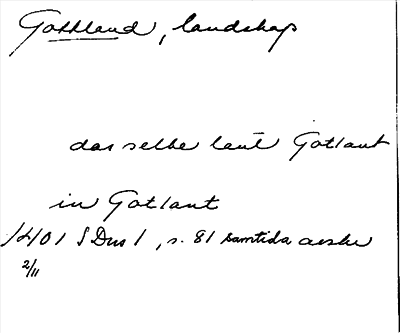 Gottland, landskap
das selbe lant Gotlant
in Gotlant
1401 SDns 1, s. 81 samtida avskr
2/11